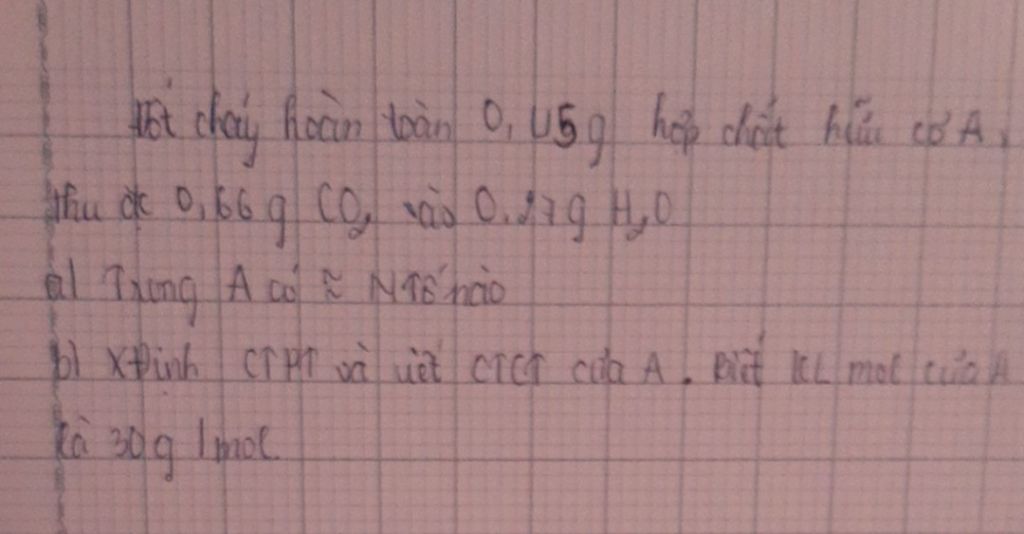 Đốt cháy hoàn toàn 0,45g hợp chất hữu cơ A,
thu đc 0,66g CO₂ vào 0,27g H₂O
a) Trong A có ~ NTố nào
b) XĐịnh CTPT và viết CTCT của A. Biết KL mol của A
là 30g/mol